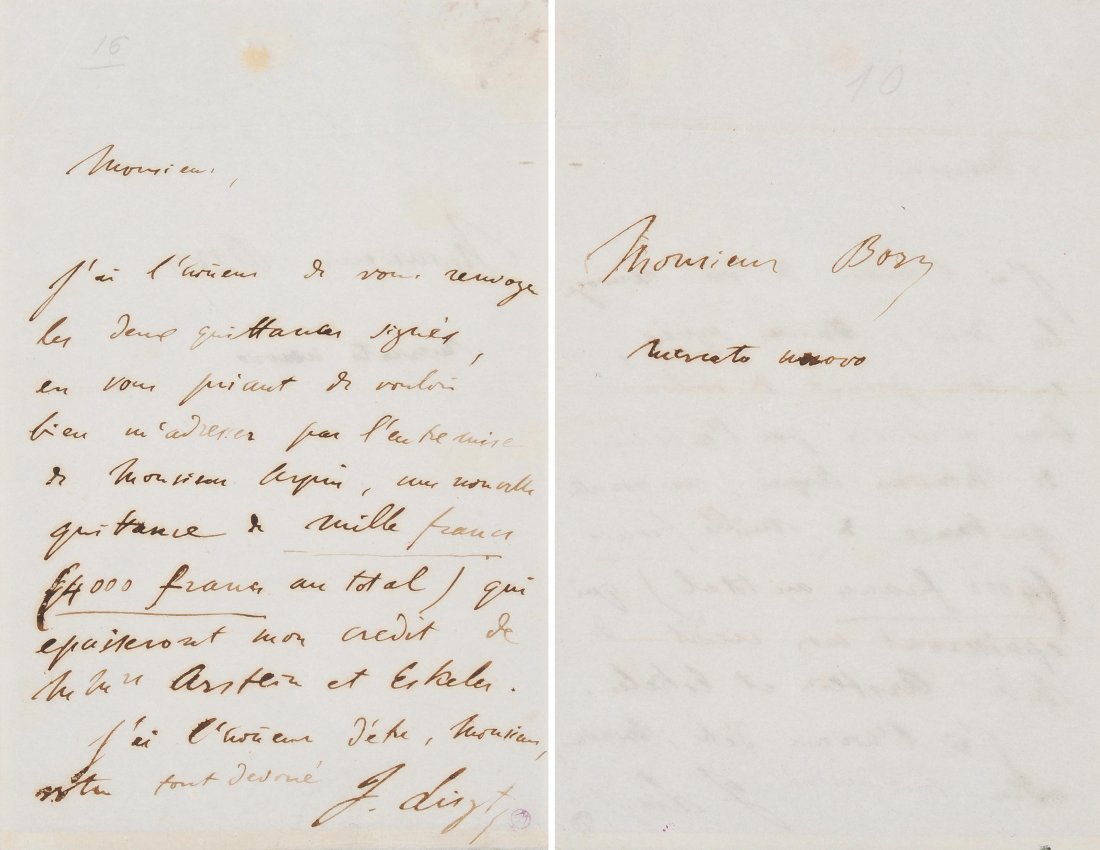 16
Monsieur,
J'ai l'honneur de vous renvoyer
les deux quittances signés,
en vous priant de vouloir
bien m'adresser par l'entremise
de Monsieur Arpin, une nouvelle
quittance de mille francs
(4000 francs au total) qui
epuiseront mon credit de
MMrs Arstein et Eskeles.
J'ai l'honneur d'être, Monsieur,
votre tout devoué
F. Liszt
10
Monsieur Bory
mercato nuovo